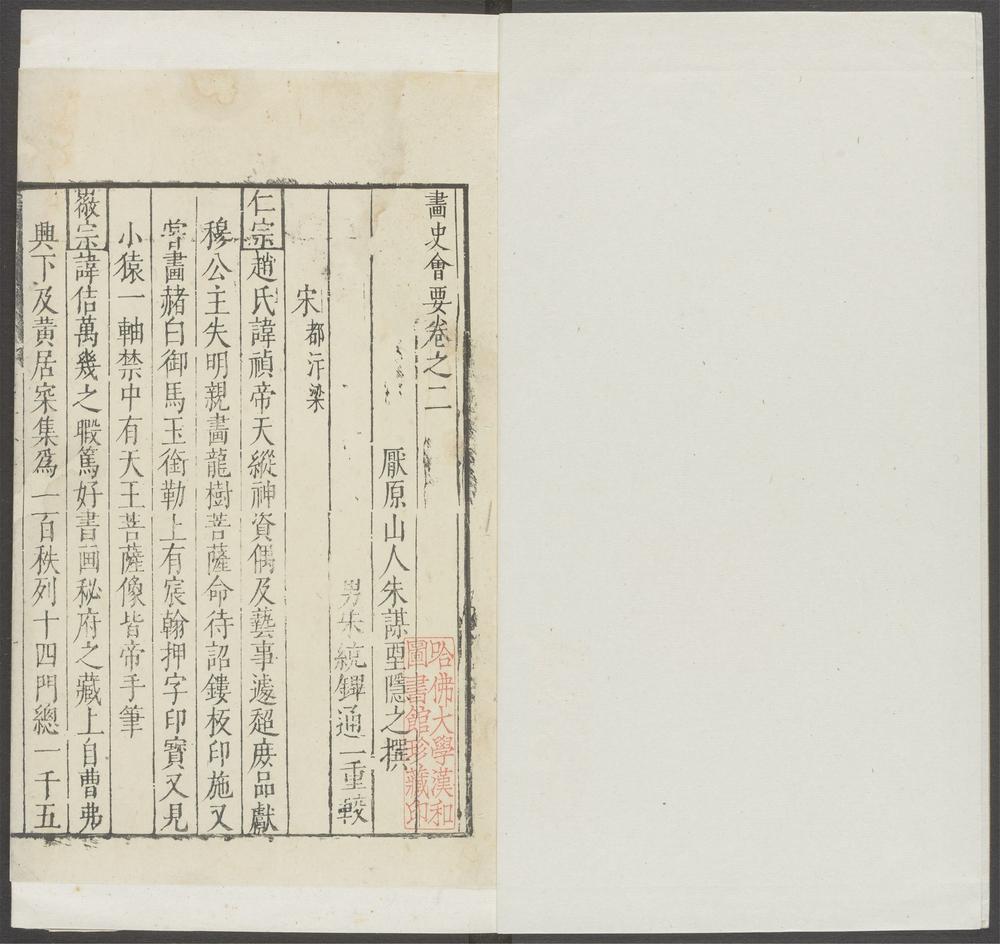 畫史會要卷之二
厭原山人朱謀垔隱之撰
男朱統鑻通一重較
宋都汴梁
仁宗趙氏諱禎帝天縱神資偶及藝事遽超庶品獻
穆公主失明親畫龍樹菩薩命待詔鏤板印施又
甞畫赭白御馬玉銜勒上有宸翰押字印寶又見
小猿一軸禁中有天王菩薩像皆帝手筆
徽宗諱佶萬幾之暇篤好書画秘府之藏上自曹弗
興下及黃居寀集爲一百秩列十四門總一千五
哈佛大學漢和
圖書館珍藏印